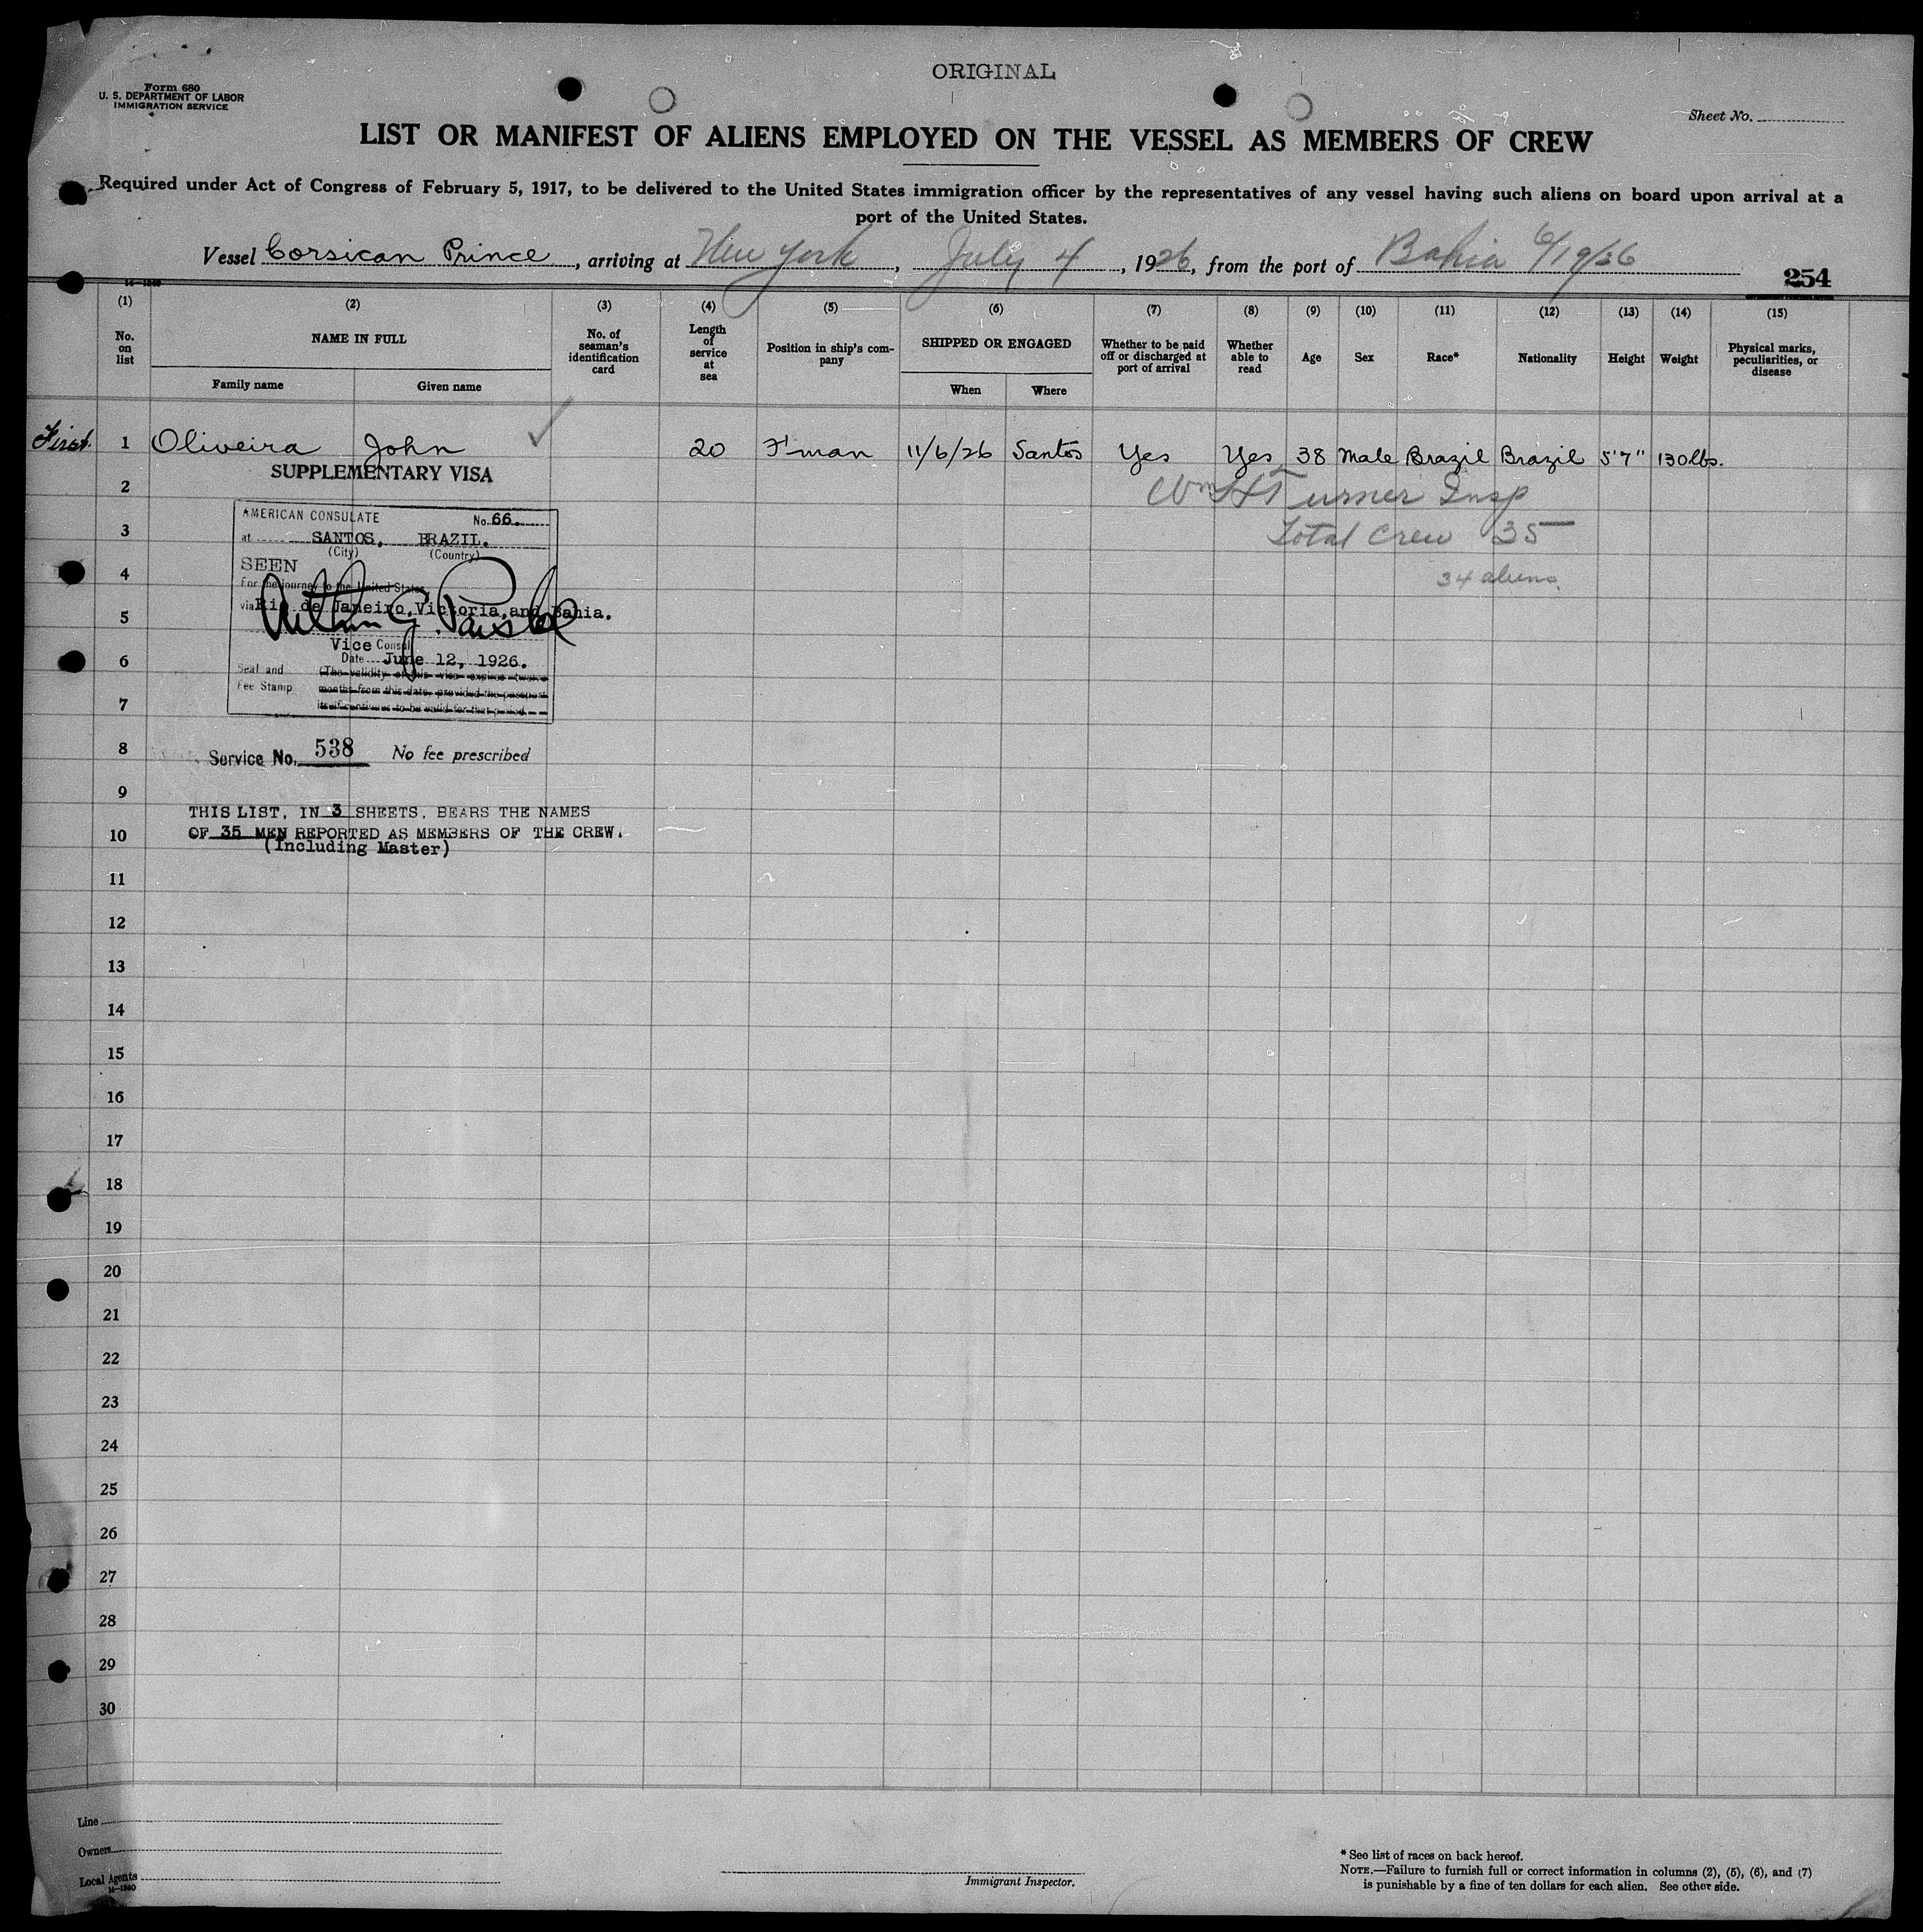 ORIGINAL
Form 680
U. S. DEPARTMENT OF LABOR
IMMIGRATION SERVICE
Sheet No.
LIST OR MANIFEST OF ALIENS EMPLOYED ON THE VESSEL AS MEMBERS OF CREW
Required under Act of Congress of February 5, 1917, to be delivered to the United States immigration officer by the representatives of any vessel having such aliens on board upon arrival at a
port of the United States.
Vessel Corsican Prince, arriving at New York, July 4, 1926, from the port of Bahia 6/19/26
254
(1) (2) (3) (4) (5) (6) (7) (8) (9) (10) (11) (12) (13) (14) (15)
No. on list NAME IN FULL No. of seaman's identification card Length of service at sea Position in ship's company SHIPPED OR ENGAGED Whether to be paid off or discharged at port of arrival Whether able to read Age Sex Race* Nationality Height Weight Physical marks, peculiarities, or disease
Family name Given name When Where
First 1 Oliveira John ✓ 20 F'man 11/6/26 Santos Yes Yes 38 Male Brazil Brazil 5'7" 130lbs.
SUPPLEMENTARY VISA
2 Wm H Turner Insp
AMERICAN CONSULATE No. 66.
3 Total Crew 35
at SANTOS, BRAZIL.
(City) (Country)
SEEN
4 34 aliens
For the journey to the United States
via Rio de Janeiro, Victoria, and Bahia.
5
Vice Consul
6
Date June 12, 1926.
Seal and (The validity of this visa expires twelve
Fee Stamp months from this date, provided the passport
itself continues to be valid for that period.
7
8
Service No. 538 No fee prescribed
9
THIS LIST, IN 3 SHEETS, BEARS THE NAMES
10 OF 35 MEN REPORTED AS MEMBERS OF THE CREW.
(Including Master)
11
12
13
14
15
16
17
18
19
20
21
22
23
24
25
26
27
28
29
30
Line
Owners
Local Agents
14—1240
Immigrant Inspector.
* See list of races on back hereof.
NOTE.—Failure to furnish full or correct information in columns (2), (5), (6), and (7)
is punishable by a fine of ten dollars for each alien. See other side.